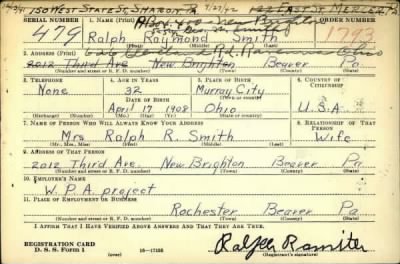 150 West State St, Sharon Pa 7/27/42 122 East St Mercer, Pa
SERIAL NUMBER 1. NAME (Print) ORDER NUMBER
479 Ralph Raymond Smith 1793
(First) (Middle) (Last)
2. ADDRESS (Print)
2012 Third Ave New Brighton Beaver Pa.
(Number and street or R. F. D. number) (Town) (County) (State)
3. TELEPHONE 4. AGE IN YEARS 5. PLACE OF BIRTH 6. COUNTRY OF CITIZENSHIP
None 32 Murray City
DATE OF BIRTH
April 17 1908 Ohio U.S.A
(Exchange) (Number) (Mo.) (Day) (Yr.) (State or country)
7. NAME OF PERSON WHO WILL ALWAYS KNOW YOUR ADDRESS 8. RELATIONSHIP OF THAT PERSON
Mrs Ralph R. Smith Wife
(Mr., Mrs., Miss) (First) (Middle) (Last)
9. ADDRESS OF THAT PERSON
2012 Third Ave. New Brighton Beaver Pa
(Number and street or R. F. D. number) (Town) (County) (State)
10. EMPLOYER'S NAME
W.P.A. project
11. PLACE OF EMPLOYMENT OR BUSINESS
Rochester Beaver Pa
(Number and street or R. F. D. number) (Town) (County) (State)
I AFFIRM THAT I HAVE VERIFIED ABOVE ANSWERS AND THAT THEY ARE TRUE.
REGISTRATION CARD
D. S. S. Form 1 (over) 16—17105 (Registrant's signature)